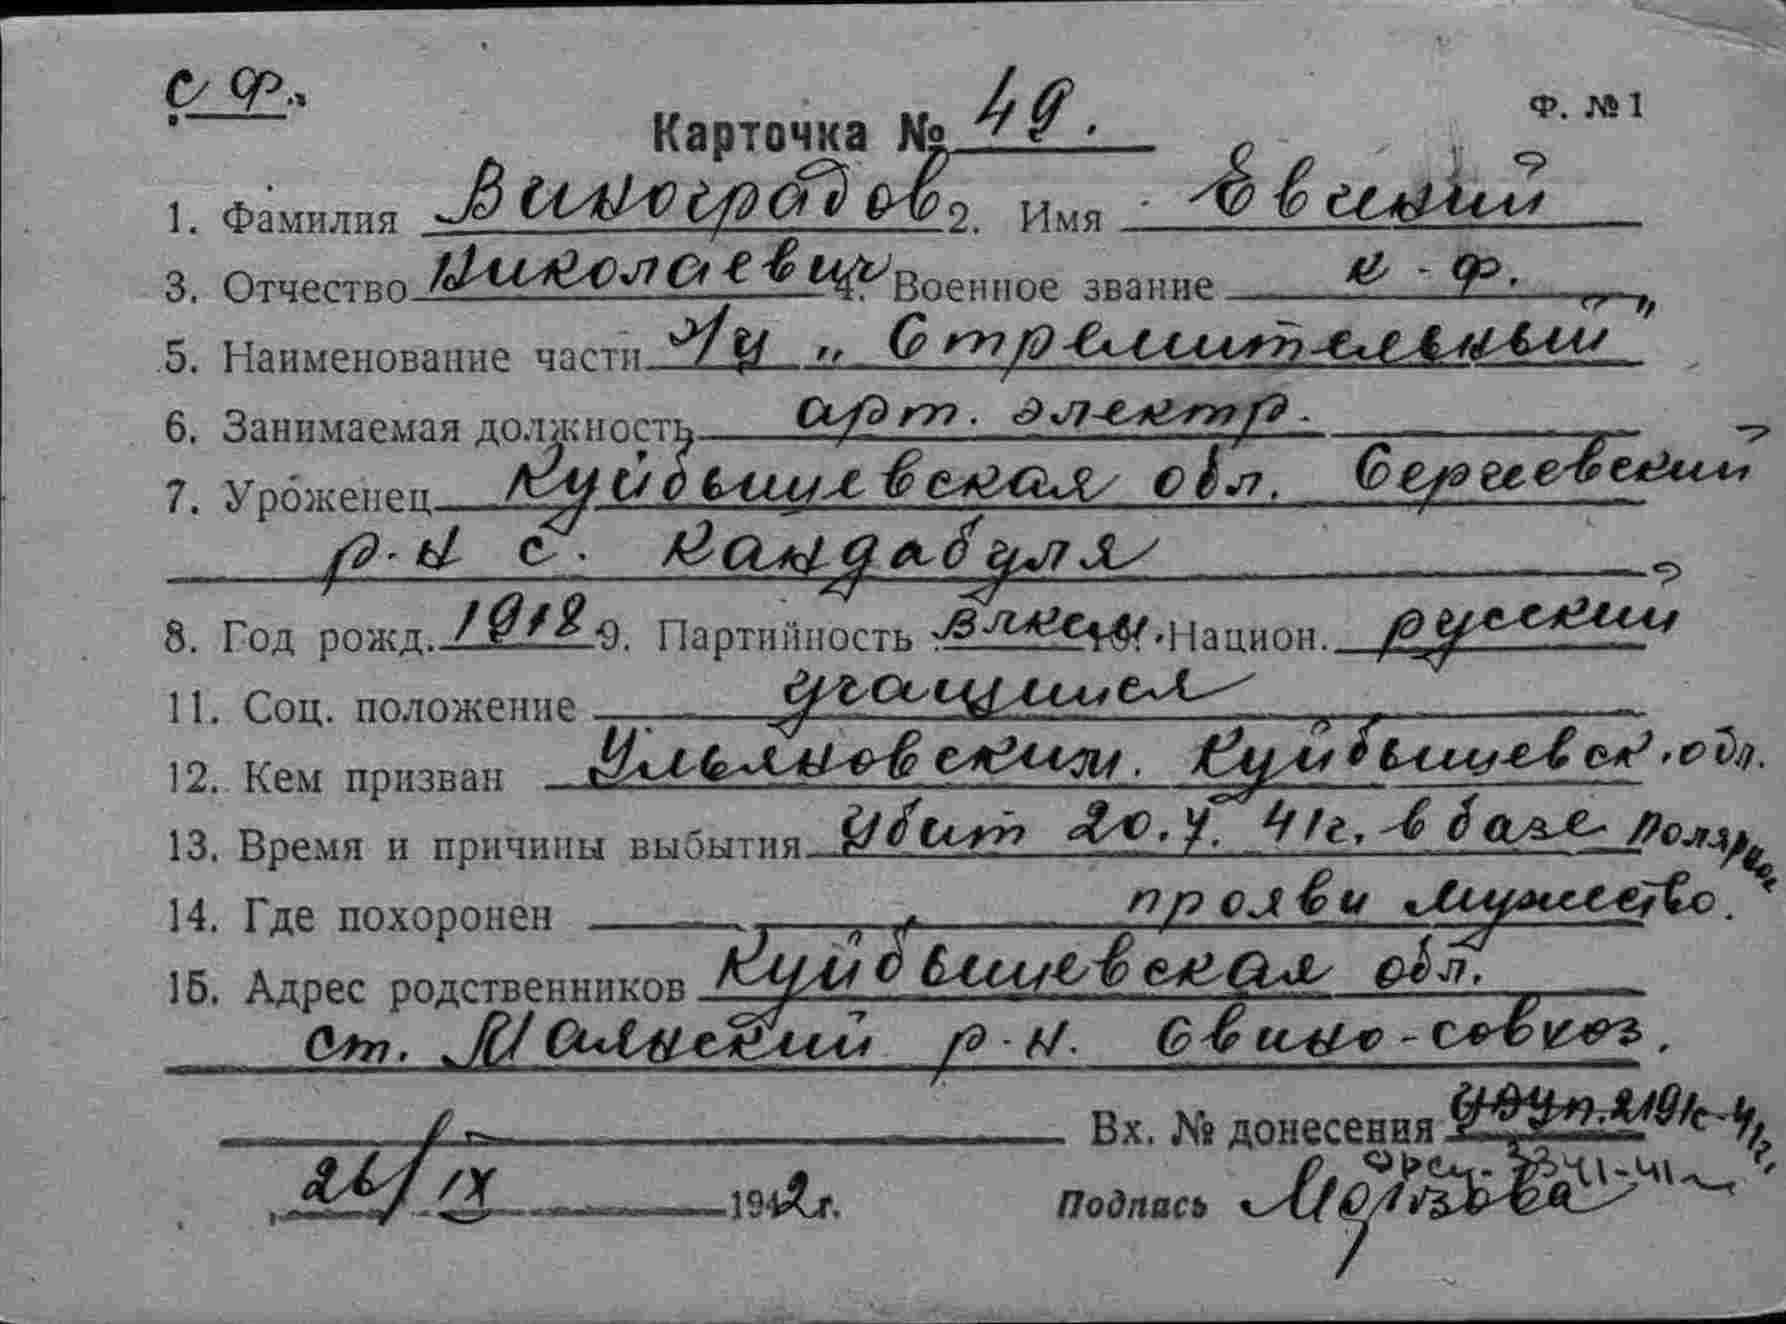 С Ф.
Ф. №1
Карточка № 49.
1. Фамилия Виноградов 2. Имя Евгений
3. Отчество Николаевич 4. Военное звание к-ф.
5. Наименование части „Стремительный"
6. Занимаемая должность арт. электр.
7. Уроженец Куйбышевская обл. Сергиевский
р-н с. Кандабуля
8. Год рожд. 1918 9. Партийность ВЛКСМ. Национ. русский
11. Соц. положение учащийся
12. Кем призван Ульяновским. Куйбышевск. обл.
13. Время и причины выбытия Убит 20.7. 41г. в базе Полярное
14. Где похоронен прояви мужество.
15. Адрес родственников Куйбышевская обл.
ст. Маянский р-н. Свино-совхоз.
Вх. № донесения
26/IX 1942г. Подпись